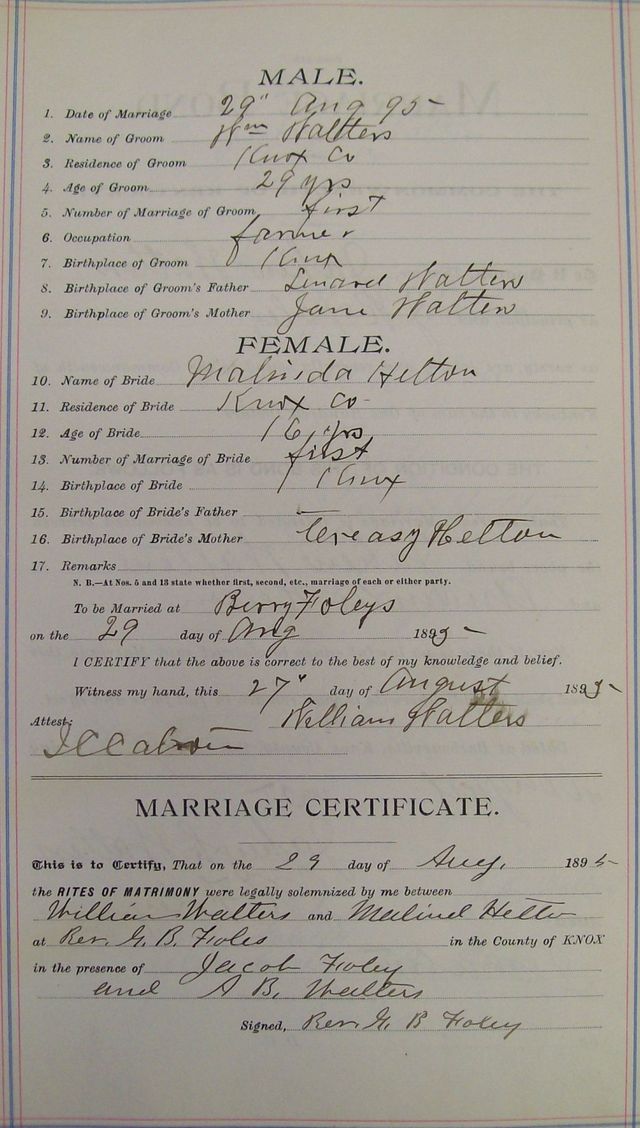 MALE.
1. Date of Marriage 29" Aug 95
2. Name of Groom Wm Walters
3. Residence of Groom Knox Co
4. Age of Groom 29 yrs
5. Number of Marriage of Groom first
6. Occupation farmer
7. Birthplace of Groom Knox
8. Birthplace of Groom's Father Linard Walters
9. Birthplace of Groom's Mother Jane Walters
FEMALE.
10. Name of Bride Malinda Helton
11. Residence of Bride Knox Co
12. Age of Bride 16 yrs
13. Number of Marriage of Bride first
14. Birthplace of Bride Knox
15. Birthplace of Bride's Father
16. Birthplace of Bride's Mother Tereasy Helton
17. Remarks
N. B.—At Nos. 5 and 13 state whether first, second, etc., marriage of each or either party.
To be Married at Berry Foleys
on the 29 day of Aug 1895
I CERTIFY that the above is correct to the best of my knowledge and belief.
Witness my hand, this 27" day of August 1895
Attest: William Walters
MARRIAGE CERTIFICATE.
This is to Certify, That on the 29 day of Aug. 1895
the RITES OF MATRIMONY were legally solemnized by me between
William Walters and Malind Helton
at Rev. G. B. Foles in the County of KNOX
in the presence of Jacob Foley
and A B. Walters
Signed, Rev. G. B Foley